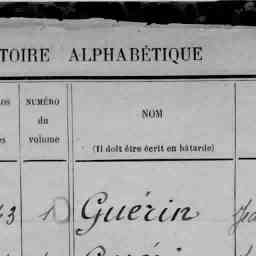 TOIRE ALPHABÉTIQUE
NUMÉRO
du
volume
NOM
(Il doit être écrit en bâtarde)
3
Guérin